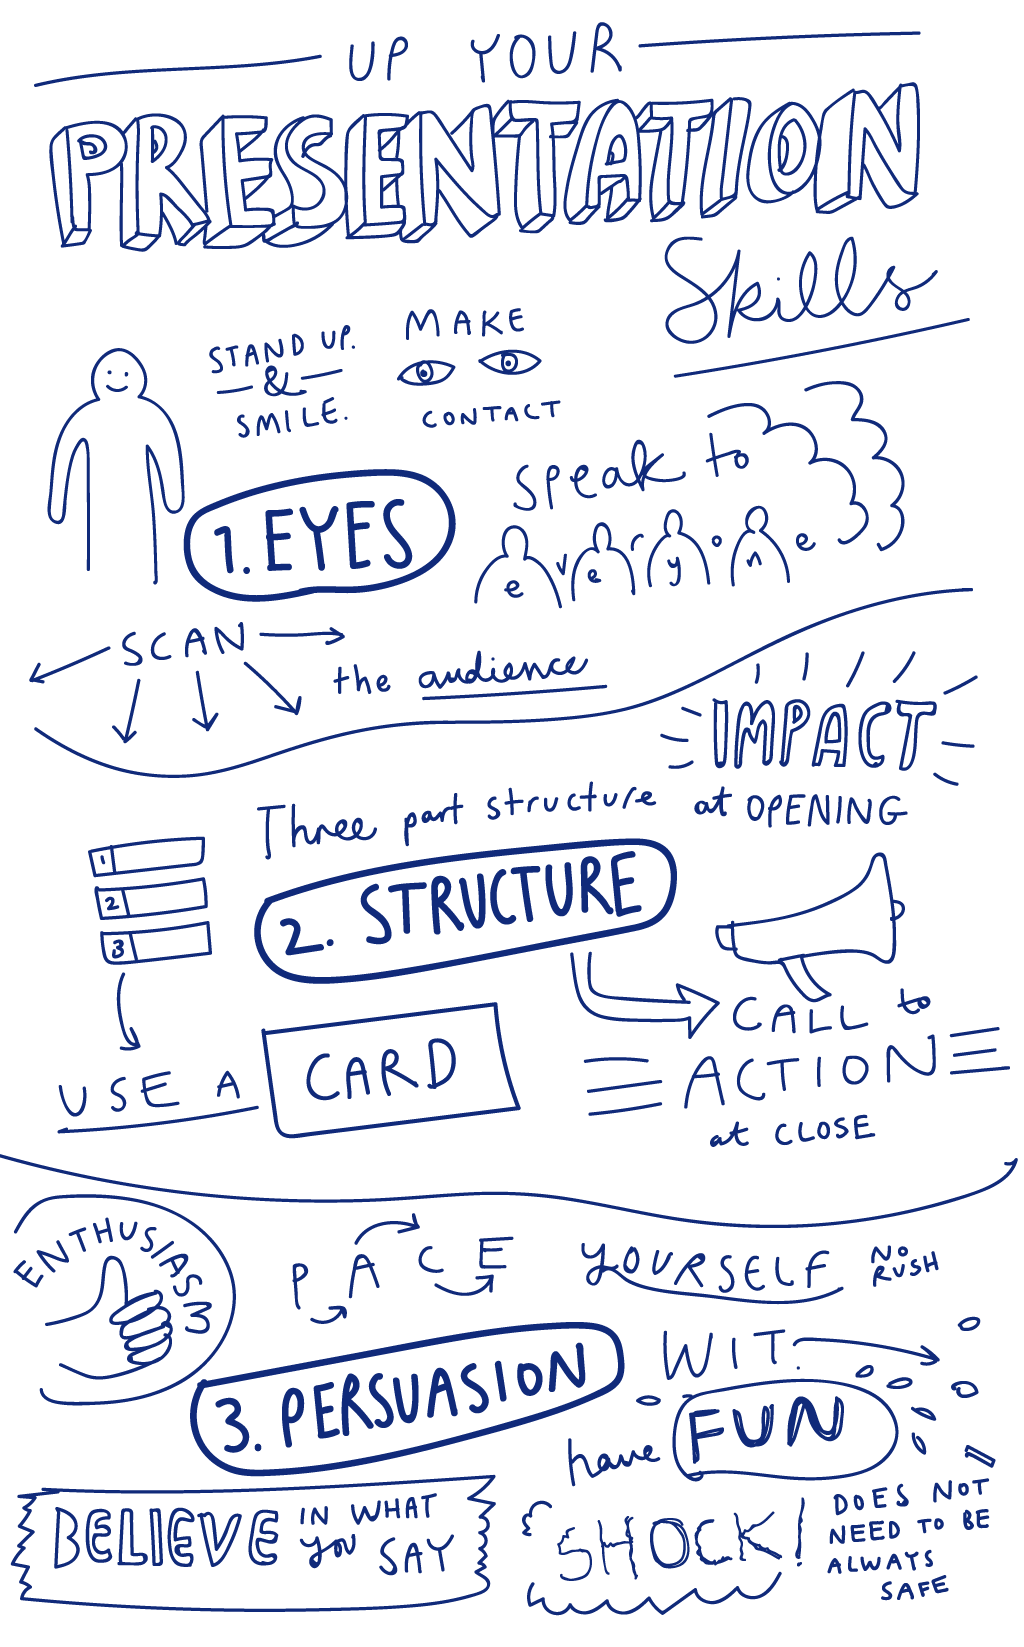 UP YOUR
PRESENTATION
Skills
STAND UP.
&
SMILE.
MAKE
CONTACT
1. EYES
speak to
everyone
SCAN
the audience
IMPACT
at OPENING
Three part structure
1
2
3
2. STRUCTURE
USE A CARD
CALL to
ACTION
at CLOSE
ENTHUSIASM
PACE YOURSELF
NO
RUSH
3. PERSUASION
WIT.
have FUN
BELIEVE IN WHAT
you SAY
SHOCK!
DOES NOT
NEED TO BE
ALWAYS
SAFE